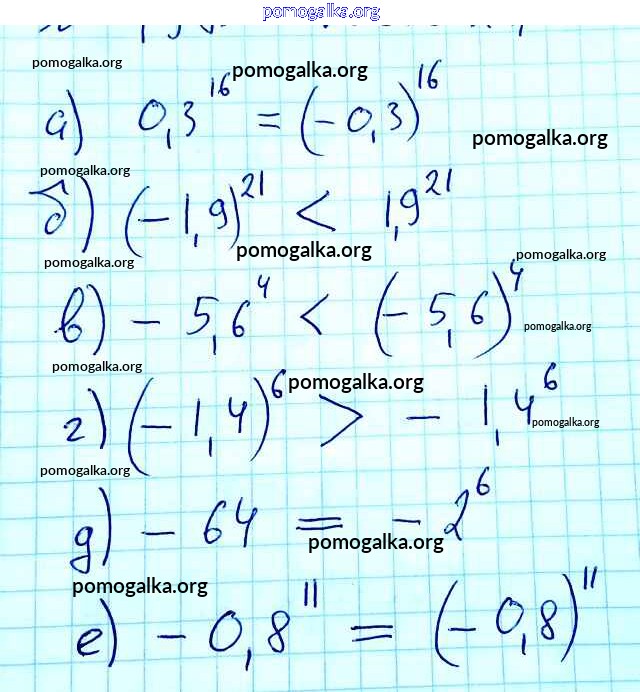 pomogalka.org
pomogalka.org pomogalka.org
а) 0,3^16 = (-0,3)^16
pomogalka.org
pomogalka.org
б) (-1,9)^21 < 1,9^21
pomogalka.org pomogalka.org
pomogalka.org
в) - 5,6^4 < (-5,6)^4
pomogalka.org
pomogalka.org
pomogalka.org
г) (-1,4)^6 > - 1,4^6
pomogalka.org
pomogalka.org
д) - 64 = - 2^6
pomogalka.org
pomogalka.org
е) - 0,8^11 = (-0,8)^11